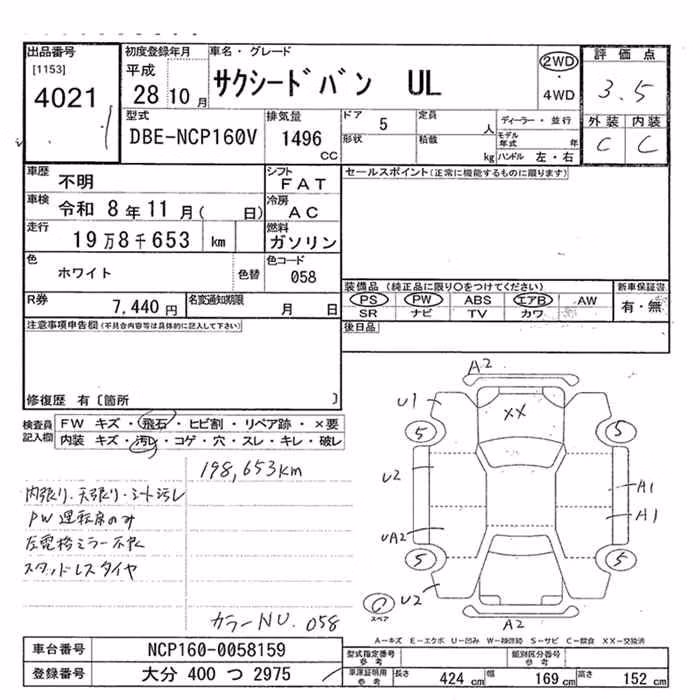 出品番号 初度登録年月 車名・グレード 評価点
[1153] 平成 サクシードバン UL 2WD ・ 4WD 3.5
4021 28 10 月 外装 内装
型式 排気量 ドア 5 定員 人 ディーラー・並行 C C
DBE-NCP160V 1496 CC 形状 積載 kg モデル年式 年 ハンドル 左・右
車歴 不明 シフト FAT セールスポイント(正常に機能するものに限ります)
車検 令和 8年 11月( 日) 冷房 AC
走行 19万8千653 km 燃料 ガソリン
色 ホワイト 色替 色コード 058
装備品 (純正品に限り○をつけてください) 新車保証書
R券 7,440円 名変通知期限 月 日 PS PW ABS エアB AW 有・無
SR ナビ TV カワ
注意事項申告欄(不具合内容等は具体的に記入して下さい) 後日品
修復歴 有〔箇所 〕
検査員記入欄 FW キズ・飛石・ヒビ割・リペア跡・×要
内装 キズ・汚レ・コゲ・穴・スレ・キレ・破レ
198,653km
内張り、天張り・シート汚レ
PW運転席のみ
左電格ミラー不良
スタッドレスタイヤ
カラーNU. 058
A2
U1 XX
5 5
U2 A1
A1
UA2
5 5
U2
スペア A2
A-キズ E-エクボ U-凹み W-補修跡 S-サビ C-腐食 XX-交換済
車台番号 NCP160-0058159 型式指定番号 参考 類別区分番号 参考
登録番号 大分 400 つ 2975 車庫証明用 参考 長さ 424 cm 幅 169 cm 高さ 152 cm